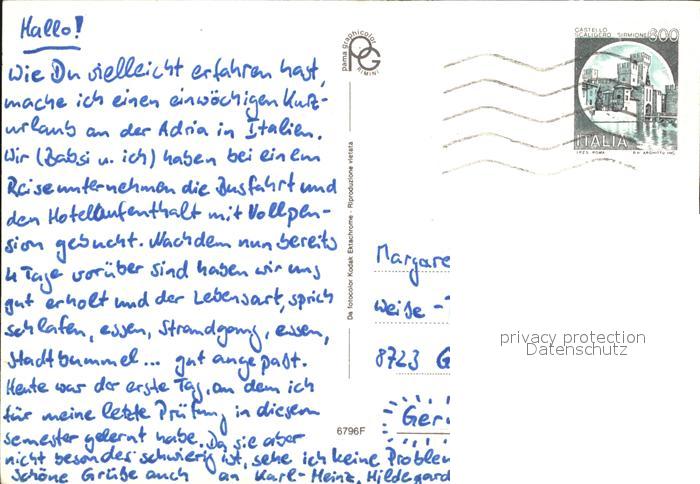 Hallo!
Wie Du vielleicht erfahren hast,
mache ich einen einwöchigen Kurz-
urlaub an der Adria in Italien.
Wir (Babsi u. ich) haben bei einem
Reiseunternehmen die Busfahrt und
den Hotelaufenthalt mit Vollpen-
sion gebucht. Nachdem nun bereits
4 Tage vorüber sind haben wir uns
gut erholt und der Lebensart, sprich
schlafen, essen, Strandgang, essen,
Stadtbummel... gut angepaßt.
Heute war der erste Tag, an dem ich
für meine letzte Prüfung in diesem
semester gelernt habe. Da sie aber
nicht besonders schwierig ist, sehe ich keine Problem
schöne Grüße auch an Karl-Heinz, Hildegard
pama graphicolor
PG
RIMINI
Da fotocolor Kodak Ektachrome - Riproduzione vietata
6796F
CASTELLO
SCALIGERO SIRMIONE 300
ITALIA
I.P.Z.S. ROMA
Margare
Weiße -
8723 G
Ger
privacy protection
Datenschutz